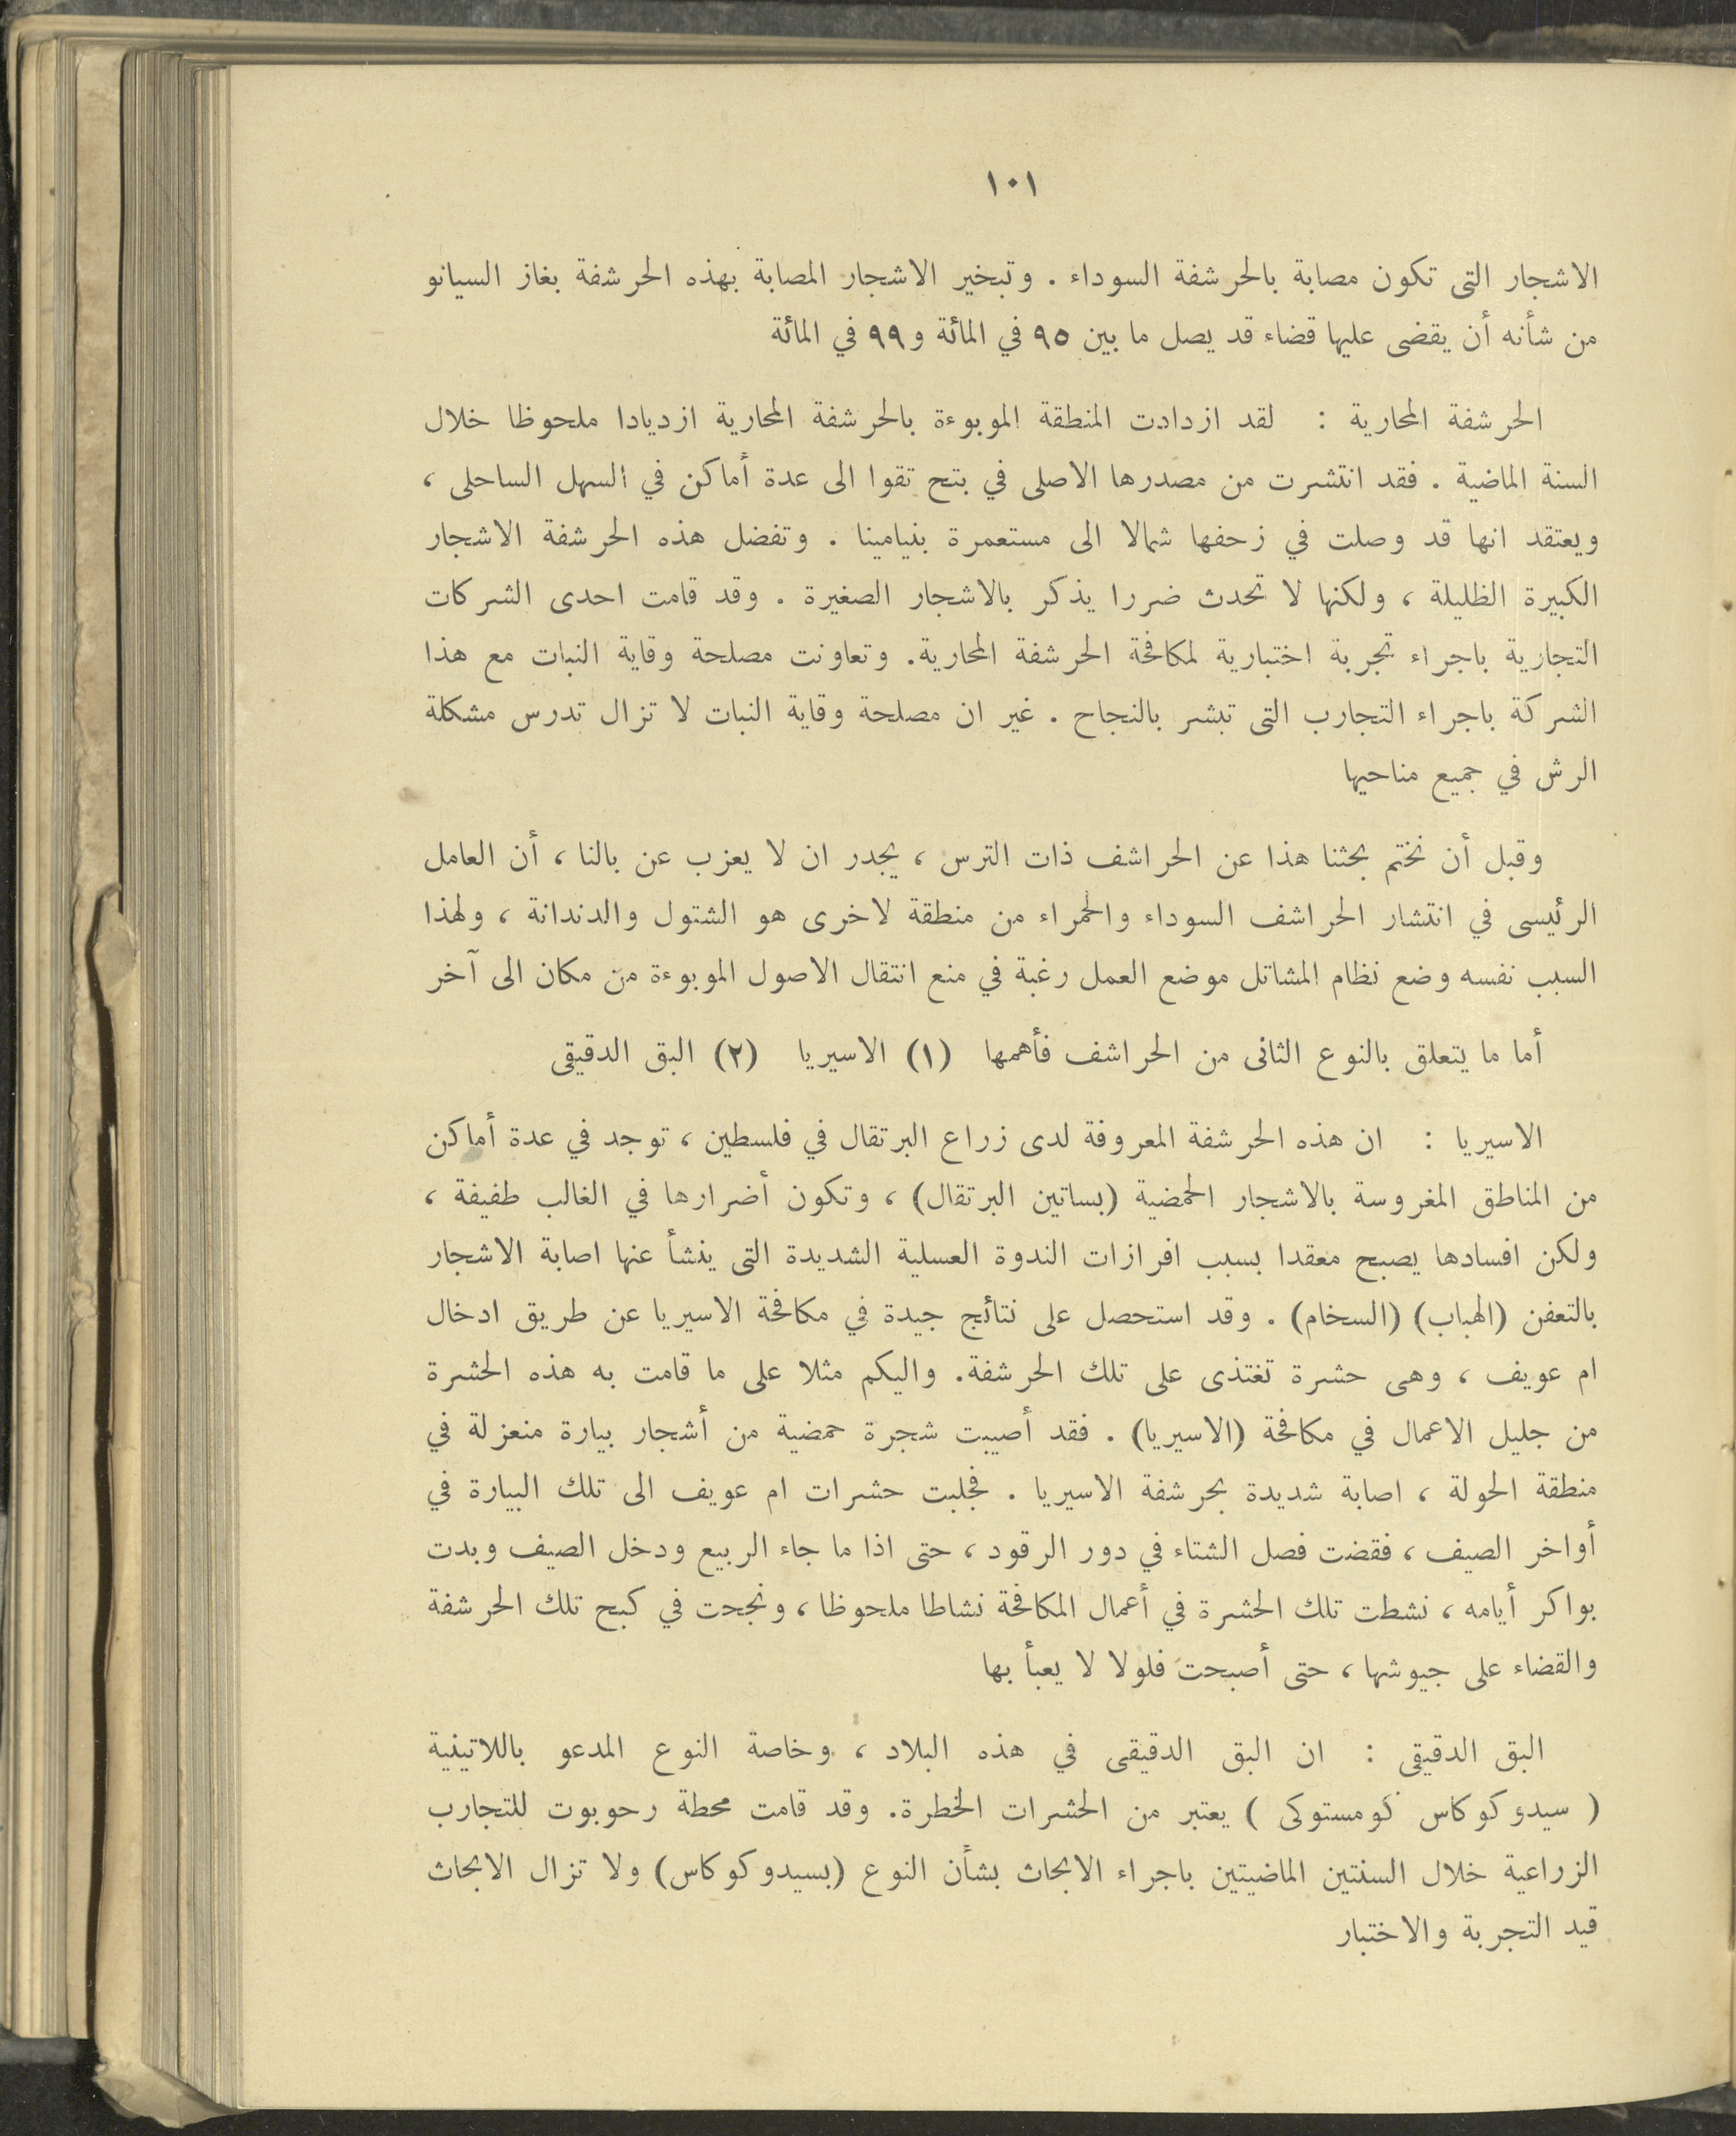 ١٠١
الاشجار التى تكون مصابة بالحرشفة السوداء . وتبخير الاشجار المصابة بهذه الحرشفة بغاز السيانو
من شأنه أن يقضى عليها قضاء قد يصل ما بين ٩٥ في المائة و ٩٩ في المائة
الحرشفة المحارية : لقد ازدادت المنطقة الموبوءة بالحرشفة المحارية ازديادا ملحوظا خلال
السنة الماضية . فقد انتشرت من مصدرها الاصلى في بتح تقوا الى عدة أماكن في السهل الساحلى ،
ويعتقد انها قد وصلت في زحفها شمالا الى مستعمرة بنيامينا . وتفضل هذه الحرشفة الاشجار
الكبيرة الظليلة ، ولكنها لا تحدث ضررا يذكر بالاشجار الصغيرة . وقد قامت احدى الشركات
التجارية باجراء تجربة اختبارية لمكافحة الحرشفة المحارية. وتعاونت مصلحة وقاية النبات مع هذا
الشركة باجراء التجارب التى تبشر بالنجاح . غير ان مصلحة وقاية النبات لا تزال تدرس مشكلة
الرش في جميع مناحيها
وقبل أن نختم بحثنا هذا عن الحراشف ذات الترس ، يجدر ان لا يعزب عن بالنا ، أن العامل
الرئيسى في انتشار الحراشف السوداء والحمراء من منطقة لاخرى هو الشتول والدندانة ، ولهذا
السبب نفسه وضع نظام المشاتل موضع العمل رغبة في منع انتقال الاصول الموبوءة من مكان الى آخر
أما ما يتعلق بالنوع الثانى من الحراشف فأهمها (١) الاسيريا (٢) البق الدقيقى
الاسيريا : ان هذه الحرشفة المعروفة لدى زراع البرتقال في فلسطين ، توجد في عدة أماكن
من المناطق المغروسة بالاشجار الحمضية (بساتين البرتقال) ، وتكون أضرارها في الغالب طفيفة ،
ولكن افسادها يصبح معقدا بسبب افرازات الندوة العسلية الشديدة التى ينشأ عنها اصابة الاشجار
بالتعفن (الهباب) (السخام) . وقد استحصل على نتائج جيدة في مكافحة الاسيريا عن طريق ادخال
ام عويف ، وهى حشرة تغتذى على تلك الحرشفة. واليكم مثلا على ما قامت به هذه الحشرة
من جليل الاعمال في مكافحة (الاسيريا) . فقد أصيبت شجرة حمضية من أشجار بيارة منعزلة في
منطقة الحولة ، اصابة شديدة بحرشفة الاسيريا . فجلبت حشرات ام عويف الى تلك البيارة في
أواخر الصيف ، فقضت فصل الشتاء في دور الرقود ، حتى اذا ما جاء الربيع ودخل الصيف وبدت
بواكر أيامه ، نشطت تلك الحشرة في أعمال المكافحة نشاطا ملحوظا ، ونجحت في كبح تلك الحرشفة
والقضاء على جيوشها ، حتى أصبحت فلولا لا يعبأ بها
البق الدقيقى : ان البق الدقيقى في هذه البلاد ، وخاصة النوع المدعو باللاتينية
( سيدوكوكاس كومستوكى ) يعتبر من الحشرات الخطرة. وقد قامت محطة رحوبوت للتجارب
الزراعية خلال السنتين الماضيتين باجراء الابحاث بشأن النوع (بسيدوكوكاس) ولا تزال الابحاث
قيد التجربة والاختبار